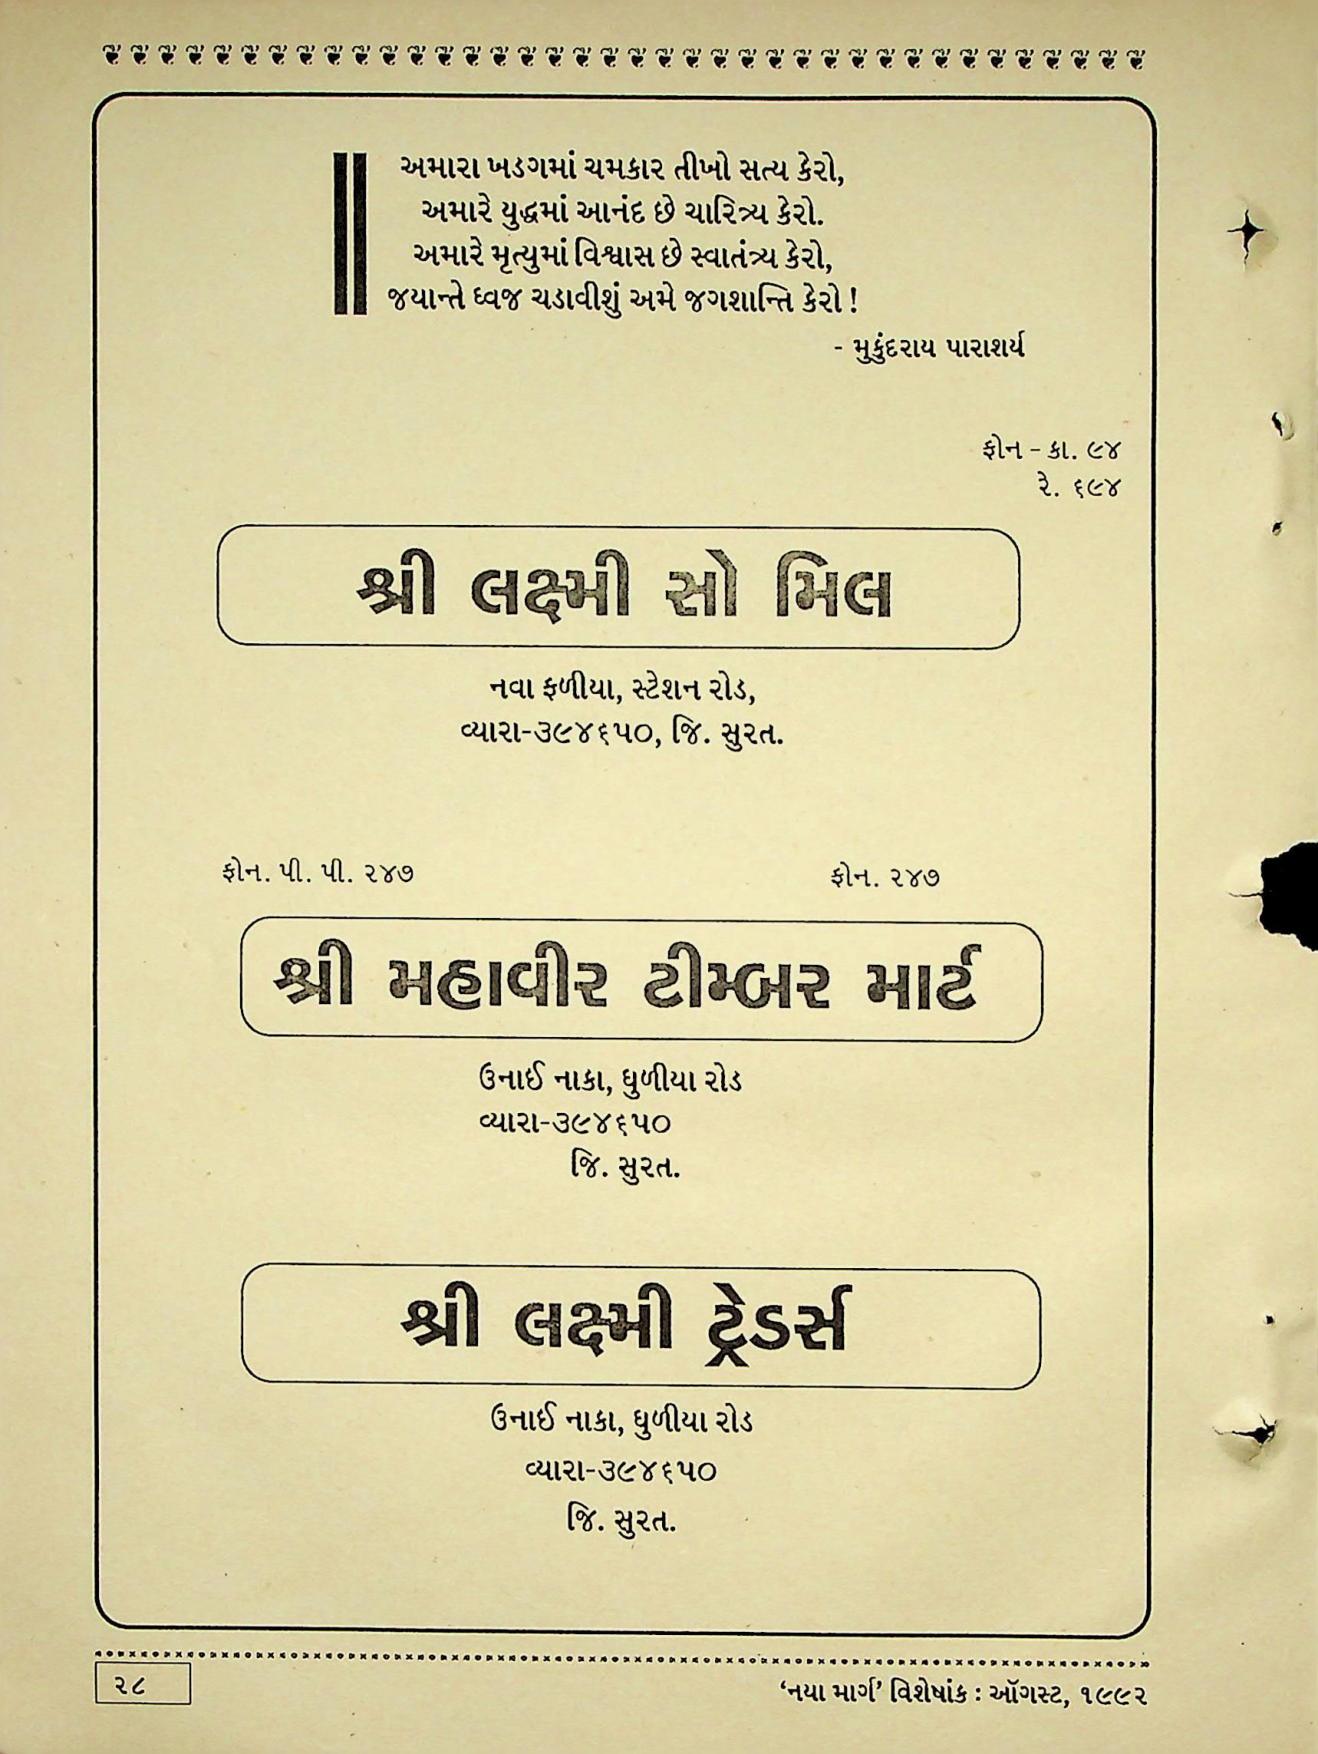 અમારા ખડગમાં ચમકાર તીખો સત્ય કેરો,
અમારે યુદ્ધમાં આનંદ છે ચારિત્ર્ય કેરો.
અમારે મૃત્યુમાં વિશ્વાસ છે સ્વાતંત્ર્ય કેરો,
જયાન્તે ધ્વજ ચડાવીશું અમે જગશાન્તિ કેરો !
- મુકુંદરાય પારાશર્ય
ફોન - કા. ૯૪
રે. ૬૯૪
શ્રી લક્ષ્મી સો મિલ
નવા ફળીયા, સ્ટેશન રોડ,
વ્યારા-૩૯૪૬૫૦, જિ. સુરત.
ફોન. પી. પી. ૨૪૭ ફોન. ૨૪૭
શ્રી મહાવીર ટીમ્બર માર્ટ
ઉનાઈ નાકા, ધુળીયા રોડ
વ્યારા-૩૯૪૬૫૦
જિ. સુરત.
શ્રી લક્ષ્મી ટ્રેડર્સ
ઉનાઈ નાકા, ધુળીયા રોડ
વ્યારા-૩૯૪૬૫૦
જિ. સુરત.
૨૮ ‘નયા માર્ગ’ વિશેષાંક : ઑગસ્ટ, ૧૯૯૨